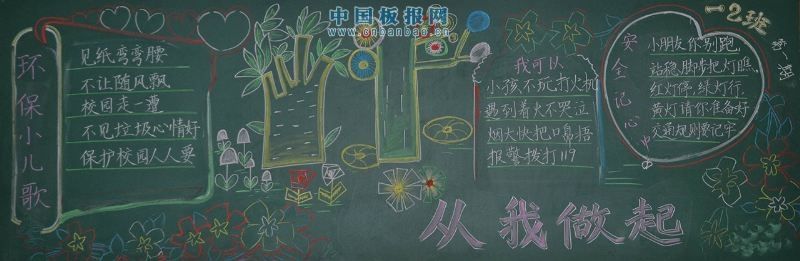 中国板报网
www.cnbanbao.cn
环保小儿歌
见纸弯弯腰
不让随风飘
校园走一遭
不见垃圾心情好
保护校园人人要
我可以
小孩不玩打火机
遇到着火不哭泣
烟大快把口鼻捂
报警拨打119
从我做起
一2班
安全记心中
小朋友你别跑
站稳脚步把灯瞧
红灯停,绿灯行
黄灯请你准备好
交通规则要记牢